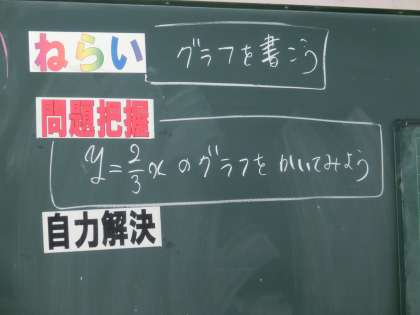 ねらい グラフを書こう
問題把握
y=2/3x のグラフを かいてみよう
自力解決